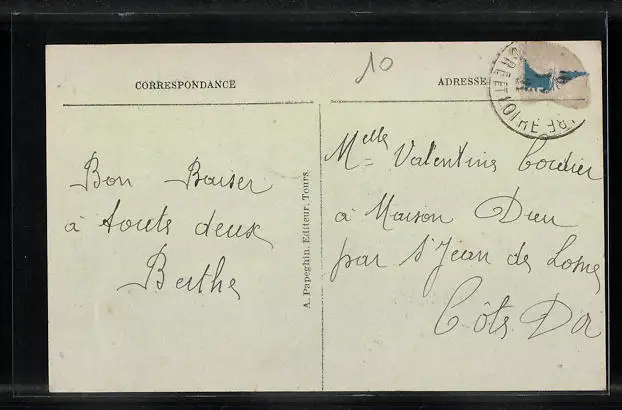 10
CORRESPONDANCE
ADRESSE
Bon Baiser
à toute deux
Berthe
A. Papeghin, Editeur, Tours.
Melle Valentine Cordier
à Maison Dieu
par St Jean de Losne
Côte D'or
ET LOIRE